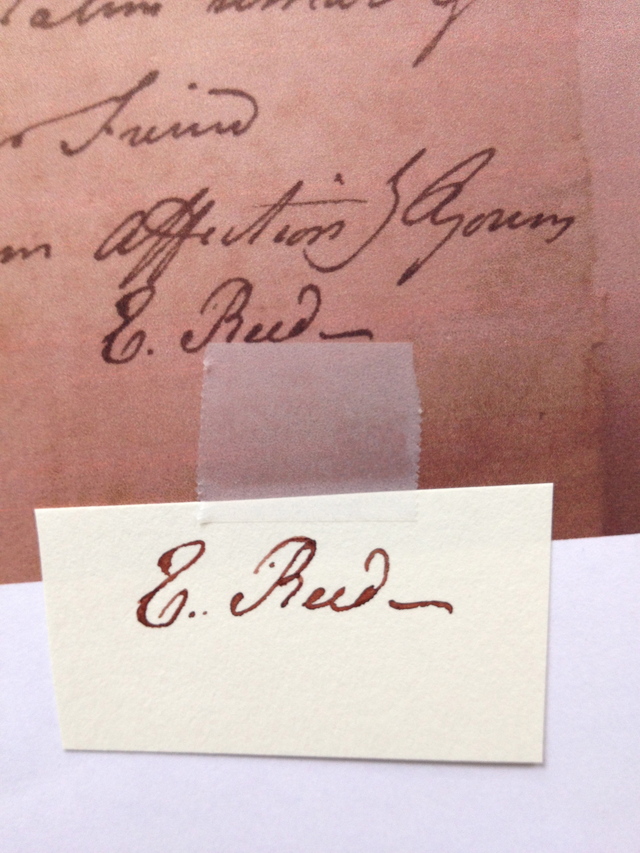 Friend
affection & Yours
E. Reed
E. Reed